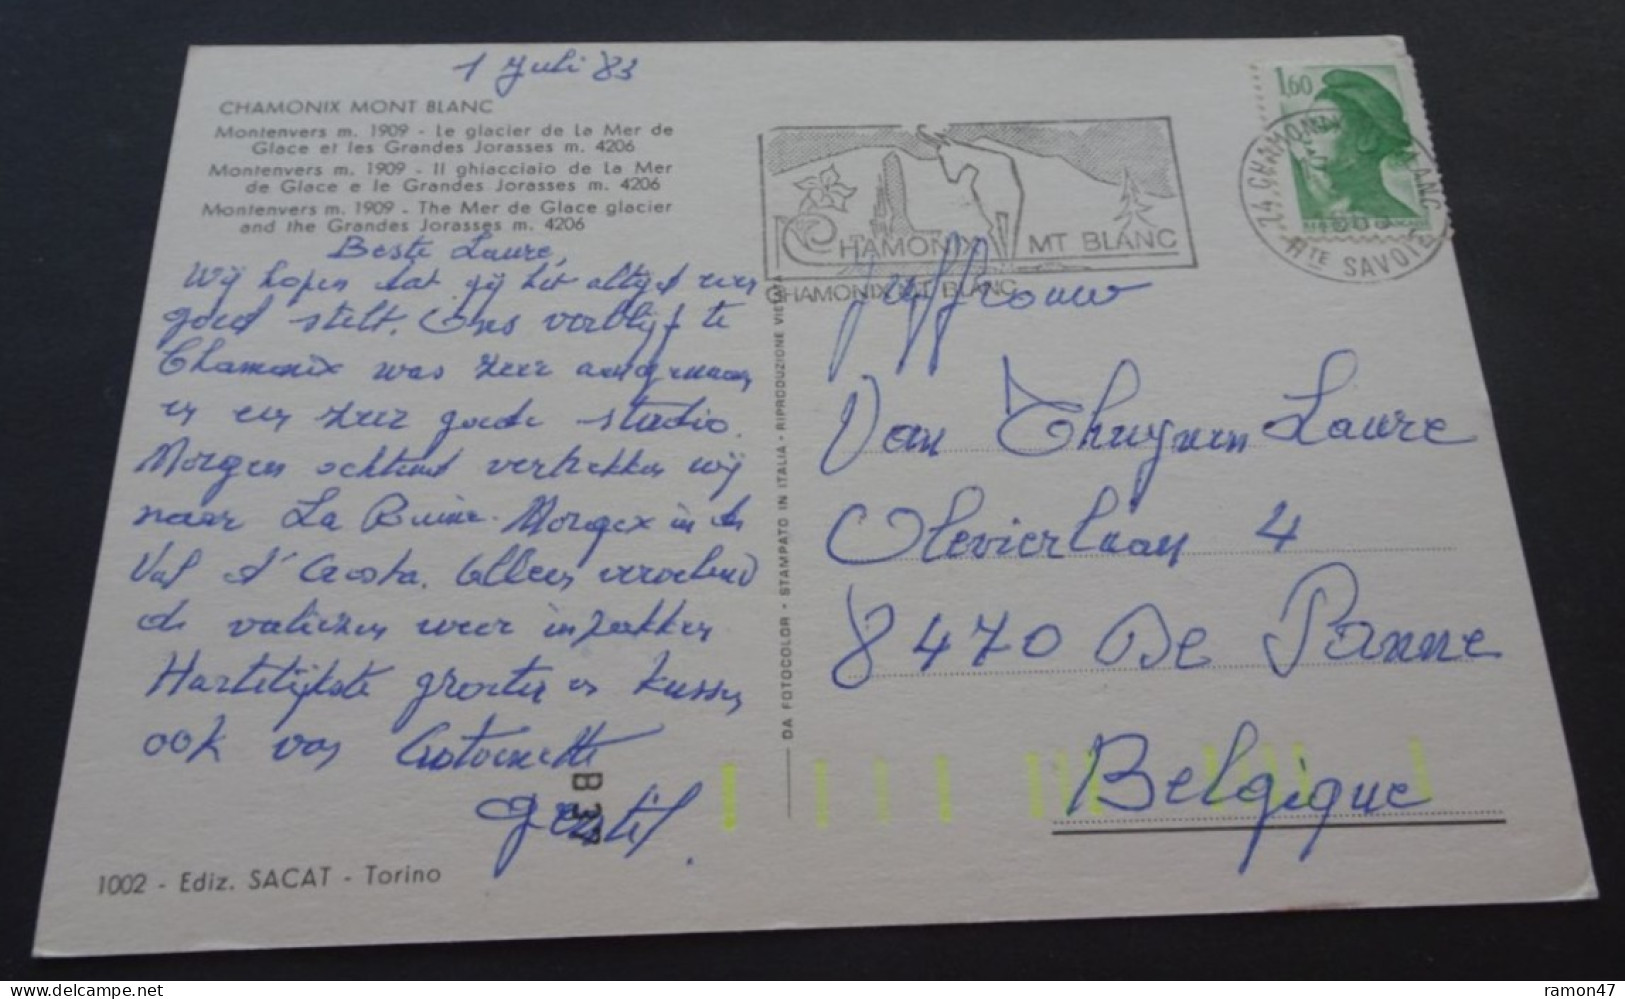 1 Juli 83
CHAMONIX MONT BLANC
Montenvers m. 1909 - Le glacier de La Mer de
Glace et les Grandes Jorasses m. 4206
Montenvers m. 1909 - Il ghiacciaio de La Mer
de Glace e le Grandes Jorasses m. 4206
Montenvers m. 1909 - The Mer de Glace glacier
and the Grandes Jorasses m. 4206
Beste Laure,
Wij hopen dat gij het altijd even
goed stelt. Ons verblijf te
Chamonix was zeer aangenaam
in een zeer goede studio.
Morgen ochtend vertrekken wij
naar La Ruine - Morgex in de
Val d'Aosta. Alleen vanavond
de valiezen weer inpakken
Hartelijkste groeten en kussen
ook van Antoinette
Gentil.
B 37
1002 - Ediz. SACAT - Torino
DA FOTOCOLOR - STAMPATO IN ITALIA - RIPRODUZIONE VIETATA
CHAMONIX MT BLANC
CHAMONIX MT BLANC
1,60
74 CHAMONIX MT BLANC
HTE SAVOIE
Juffrouw
Van Thuynen Laure
Olevierlaan 4
8470 De Panne
Belgique
ramon47